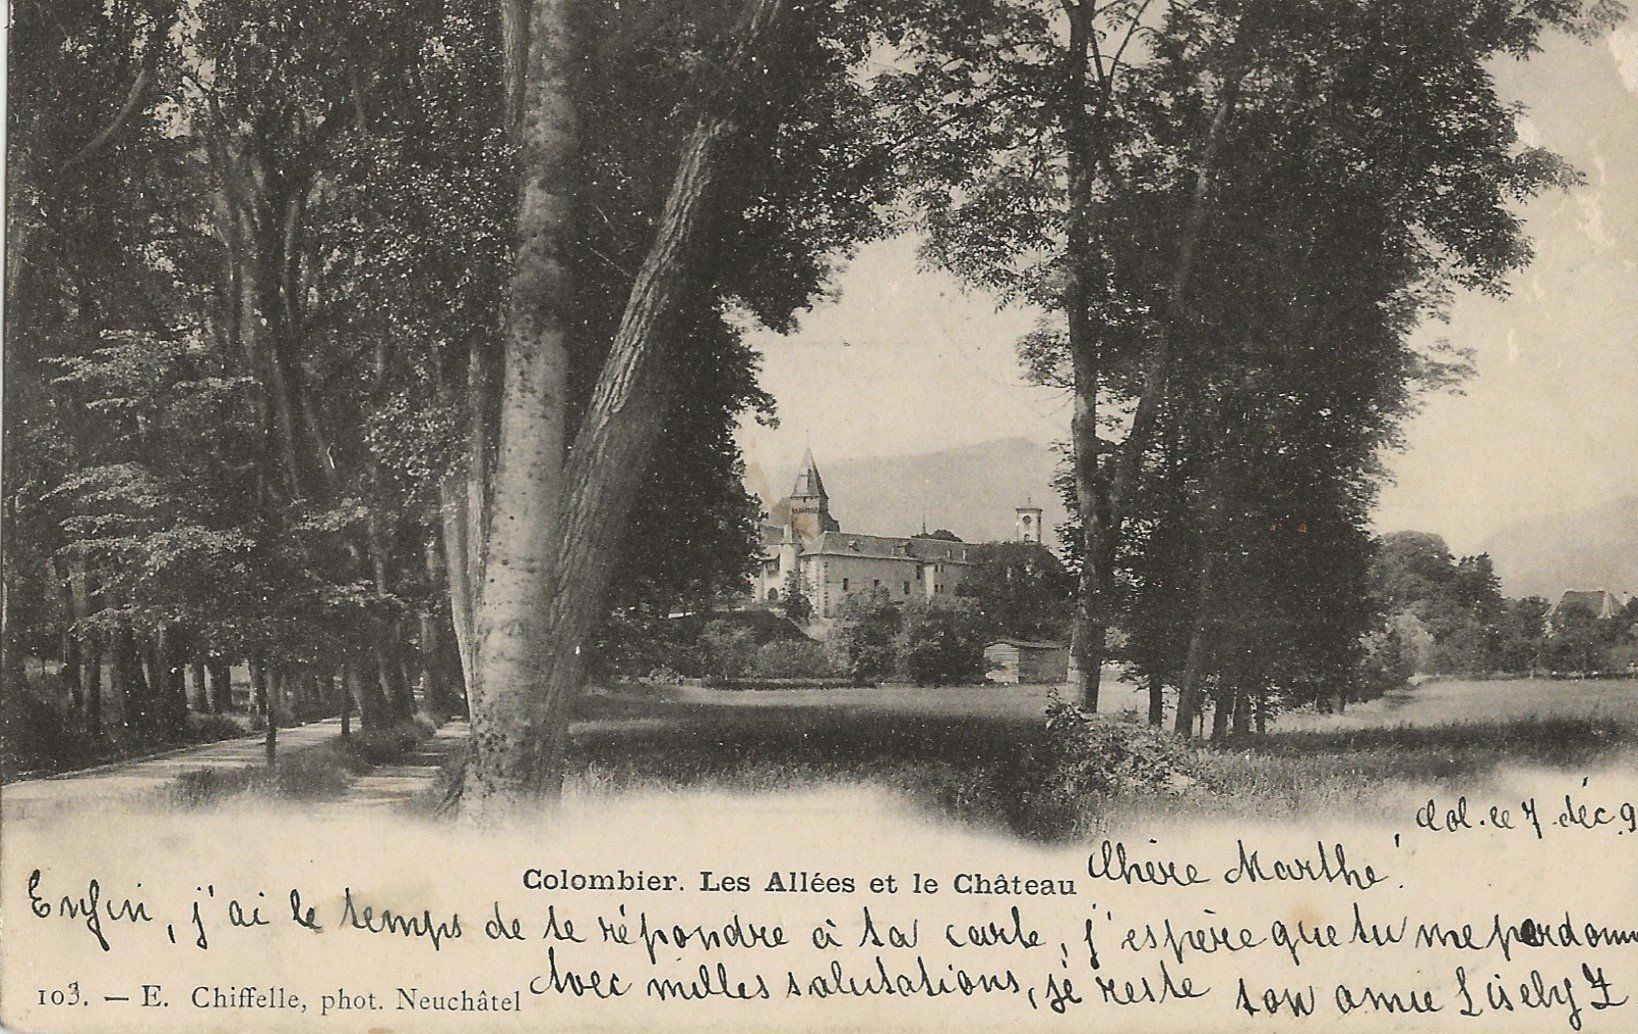 Col. le 7. déc 9
Colombier. Les Allées et le Château
Chère Marthe!
Enfin, j'ai le temps de te répondre à ta carte, j'espère que tu me perdonn
Avec milles salutations, je reste ton amie Lisely Z
103. — E. Chiffelle, phot. Neuchâtel